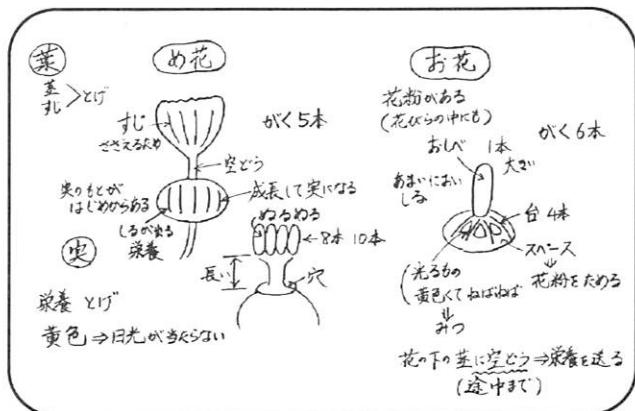 葉
茎
丸
>とげ
め花
すじ
ささえるため
がく5本
空どう
実のもとが
はじめからある
成長して実になる
しるが出る
栄養
ぬるぬる
8本 10本
長い
穴
実
栄養 とげ
黄色⇒日光が当たらない
お花
花粉がある
(花びらの中にも)
がく6本
おしべ 1本
大きい
あまいにおい
しる
台4本
スペース
⇓
花粉をためる
光るもの
黄色くてねばねば
⇓
みつ
花の下の茎に空どう⇒栄養を送る
(途中まで)